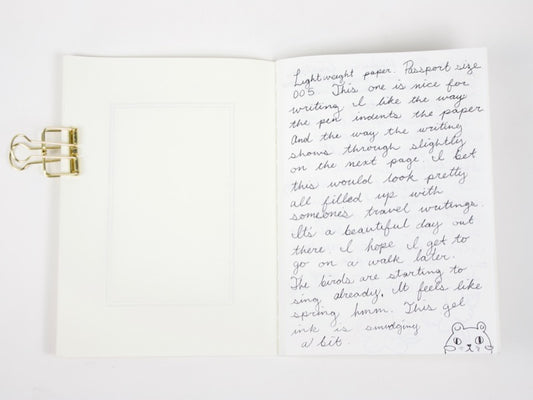 Lightweight paper. Passport size
005. This one is nice for
writing. I like the way
the pen indents the paper
And the way the writing
shows through slightly
on the next page. I bet
this would look pretty
all filled up with
someones travel writings.
It's a beautiful day out
there. I hope I get to
go on a walk later.
The birds are starting to
sing already. It feels like
spring hmm. This gel
ink is smudging
a bit.